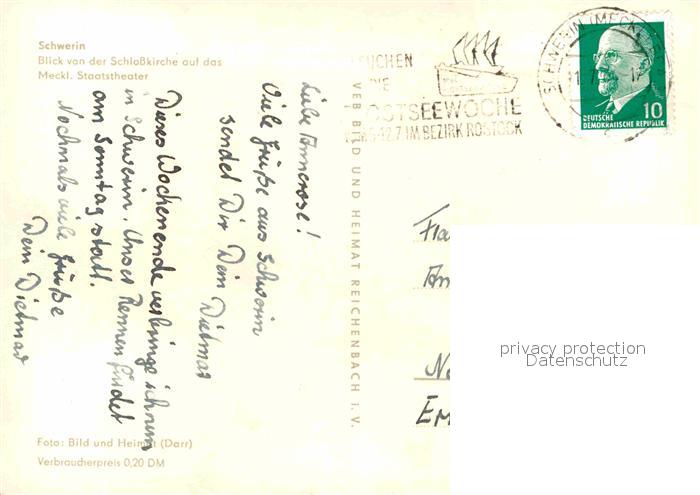 Schwerin
Blick von der Schloßkirche auf das
Meckl. Staatstheater
Liebe Annerose!
Viele Grüße aus Schwerin
sendet Dir Dein Dietmar
Dieses Wochenende verbringe ich nun
in Schwerin. Unser Rennen findet
am Sonntag statt.
Nochmals viele Grüße
Dein Dietmar
Foto: Bild und Heimat (Darr)
Verbraucherpreis 0,20 DM
VEB BILD UND HEIMAT REICHENBACH i. V.
SUCHEN
DIE
OSTSEEWOCHE
12.7 IM BEZIRK ROSTOCK
SCHWERIN (MECKL)
10
DEUTSCHE
DEMOKRATISCHE REPUBLIK
privacy protection
Datenschutz